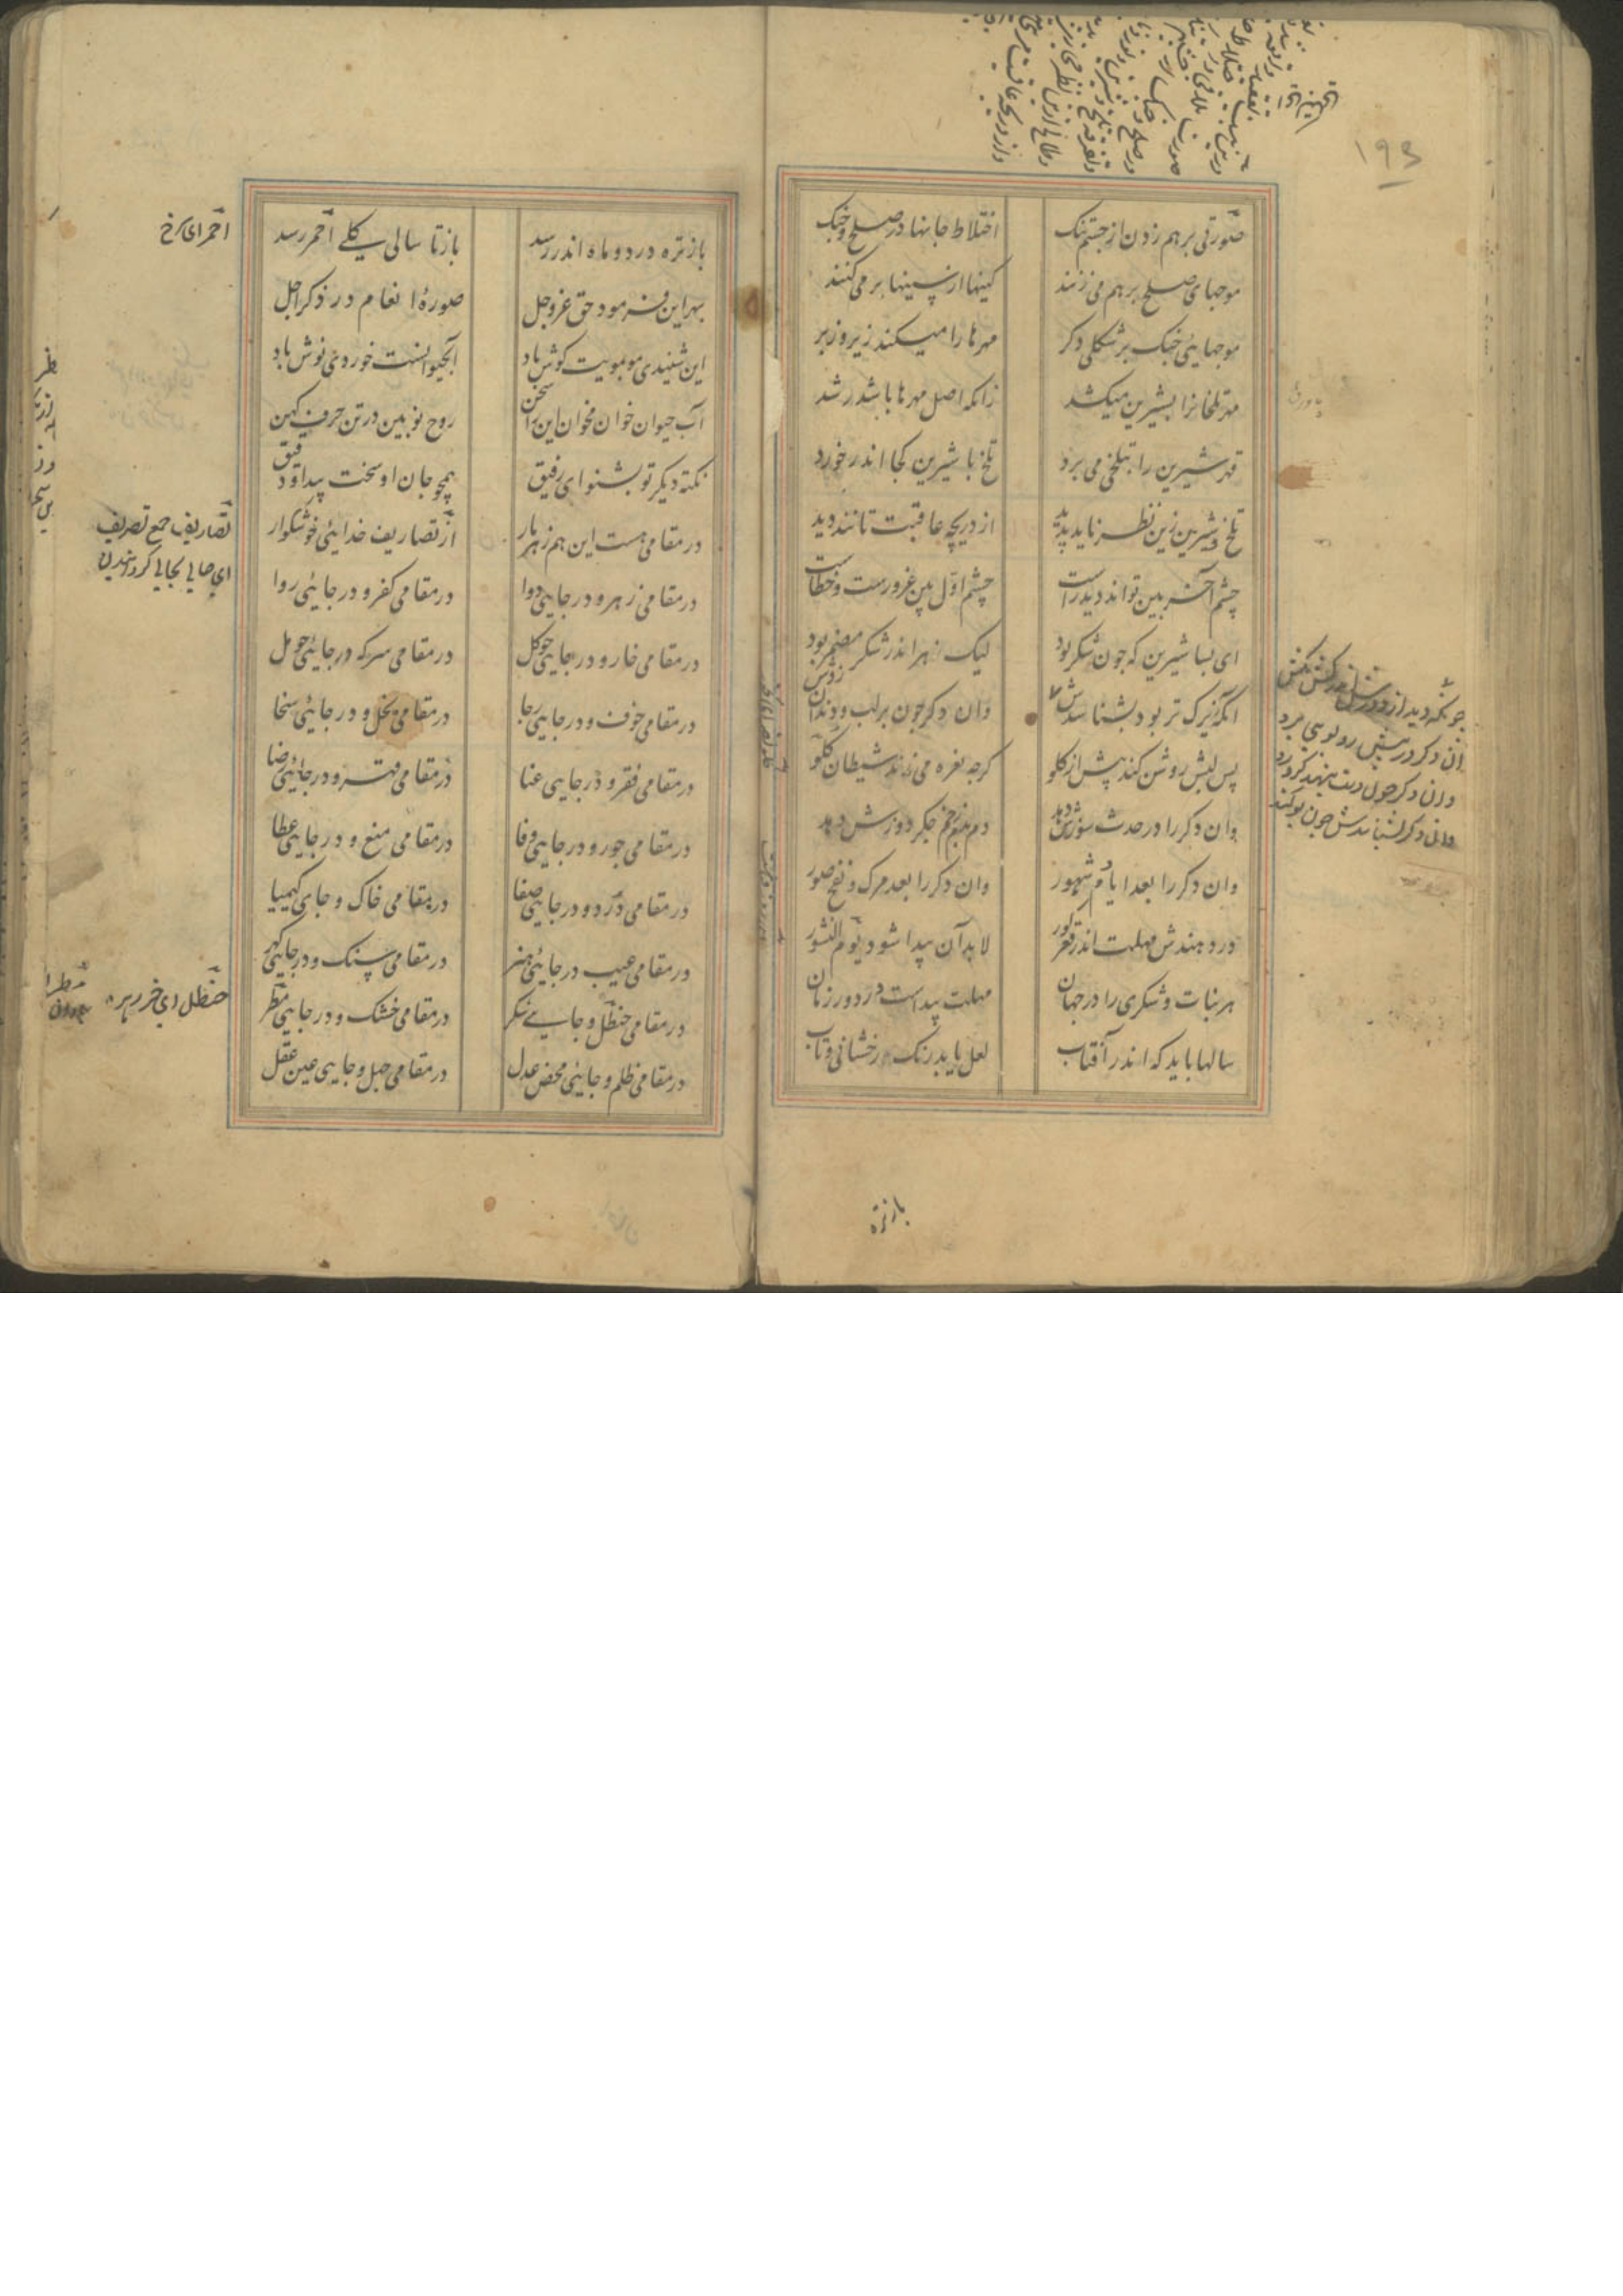 ۱۹۳
صورتی بر هم زدن از جسم تنک
اختلاط جانها در صلح و جنک
موجهای صلح بر هم می زنند
کینها از سینها بر می کنند
موجهایی جنک بر شکلی دکر
مهرها را میکند زیر و زبر
مهر تلخانرا بشیرین میکشد
زانکه اصل مهرها باشد رشد
قهر شیرین را بتلخی می برد
تلخ با شیرین کجا اندر خورد
تلخ و شیرین زین نظر ناید پدید
از دریچه عاقبت تانند دید
چشم آخر بین تواند دید راست
چشم اول بین غرورست و خطاست
ای بسا شیرین که جون شکر بود
لیک زهر اندر شکر مضمر بود
انکه زیرک تر بود بشناسدش
وان دکر جون بر لب و دندان زدش
پس لبش روشن کند پیش از کلو
کرجه نعره می زند شیطان کلو
وان دکر را در حدث سوزش دهد
دم بدم زخم جکر دوزش دهد
وان دکر را بعد ایام و شهور
وان دکر را بعد مرک و نفخ صور
ور دهندش مهلت اندر قعر کور
لابد آن پیدا شود یوم النشور
هر نبات و شکری را در جهان
مهلت پیداست در دور زمان
سالها باید که اندر آفتاب
لعل یابد رنک و رخشانی و تاب
جونکه دید از دورش اندر کش مکش
ان دکر در پیش رو بویی برد
وان دکر جون دست بنهد کرد رد
وان دکر بشناسدش جون بو کند
باز تره
باز تره در دو ماه اندر رسد
باز تا سالی کلی احمر رسد
بهر این فرمود حق عز و جل
صورهٔ انعام در ذکر اجل
این شنیدی مو بمویت کوش باد
آب حیوانست خوردی نوش باد
آب حیوان خوان مخوان این را سخن
روح نو بین در تن حرف کهن
نکته دیکر تو بشنو ای رفیق
همچو جان او سخت پیدا و دقیق
در مقامی هست این هم زهر مار
از تصاریف خدایی خوشکوار
در مقامی زهر و در جایی دوا
در مقامی کفر و در جایی روا
در مقامی خار و در جایی جو کل
در مقامی سرکه در جایی جو مل
در مقامی خوف و در جایی رجا
در مقامی بخل و در جایی سخا
در مقامی فقر و در جایی غنا
در مقامی قهر و در جایی رضا
در مقامی جور و در جایی وفا
در مقامی منع و در جایی عطا
در مقامی درد و در جایی صفا
در مقامی خاک و جای کیمیا
در مقامی عیب در جایی هنر
در مقامی سنک و در جایی کهر
در مقامی حنظل و جایی شکر
در مقامی خشک و در جایی مطر
در مقامی ظلم و جایی محض عدل
در مقامی جهل و جایی عین عقل
احمر ای سرخ
تصاریف جمع تصریف
ای جایی بجایی کردانیدن
حنظل ای خر زهره